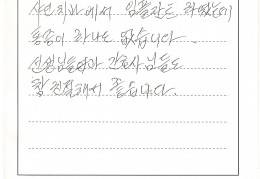 치과에서 임플란트 하였는데
통증이 하나도 없습니다.
선생님들과 간호사님들도
참 친절해서 좋습니다.